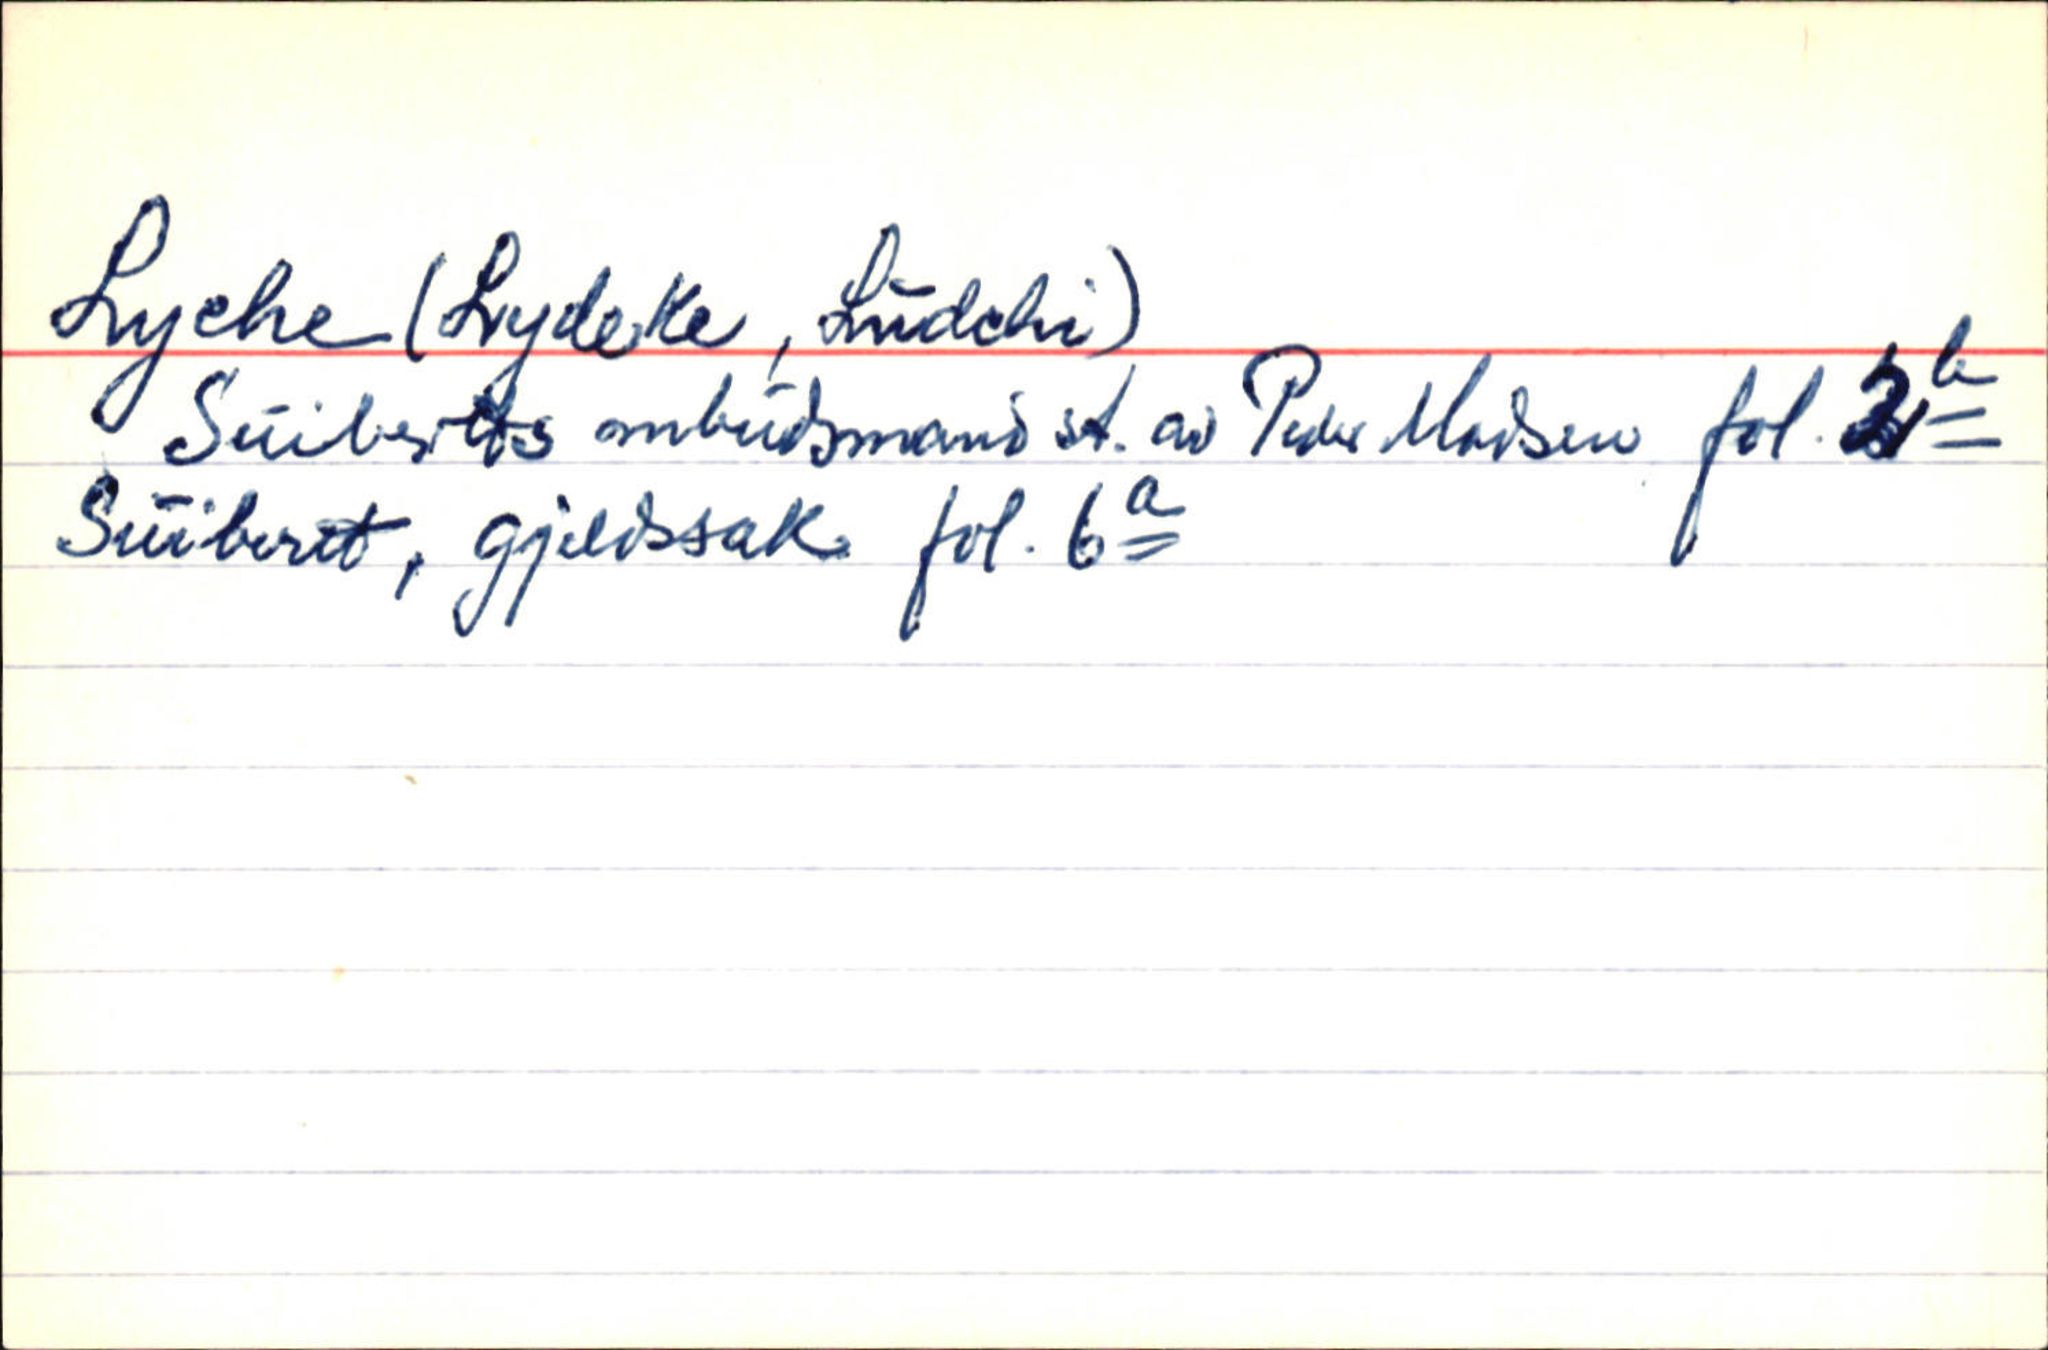 Lyche (Lydeke, Ludchi)
Suiberts ombudsmand st. av Peder Madsen fol. 2 b
Suibert, gjeldssak fol. 6 a